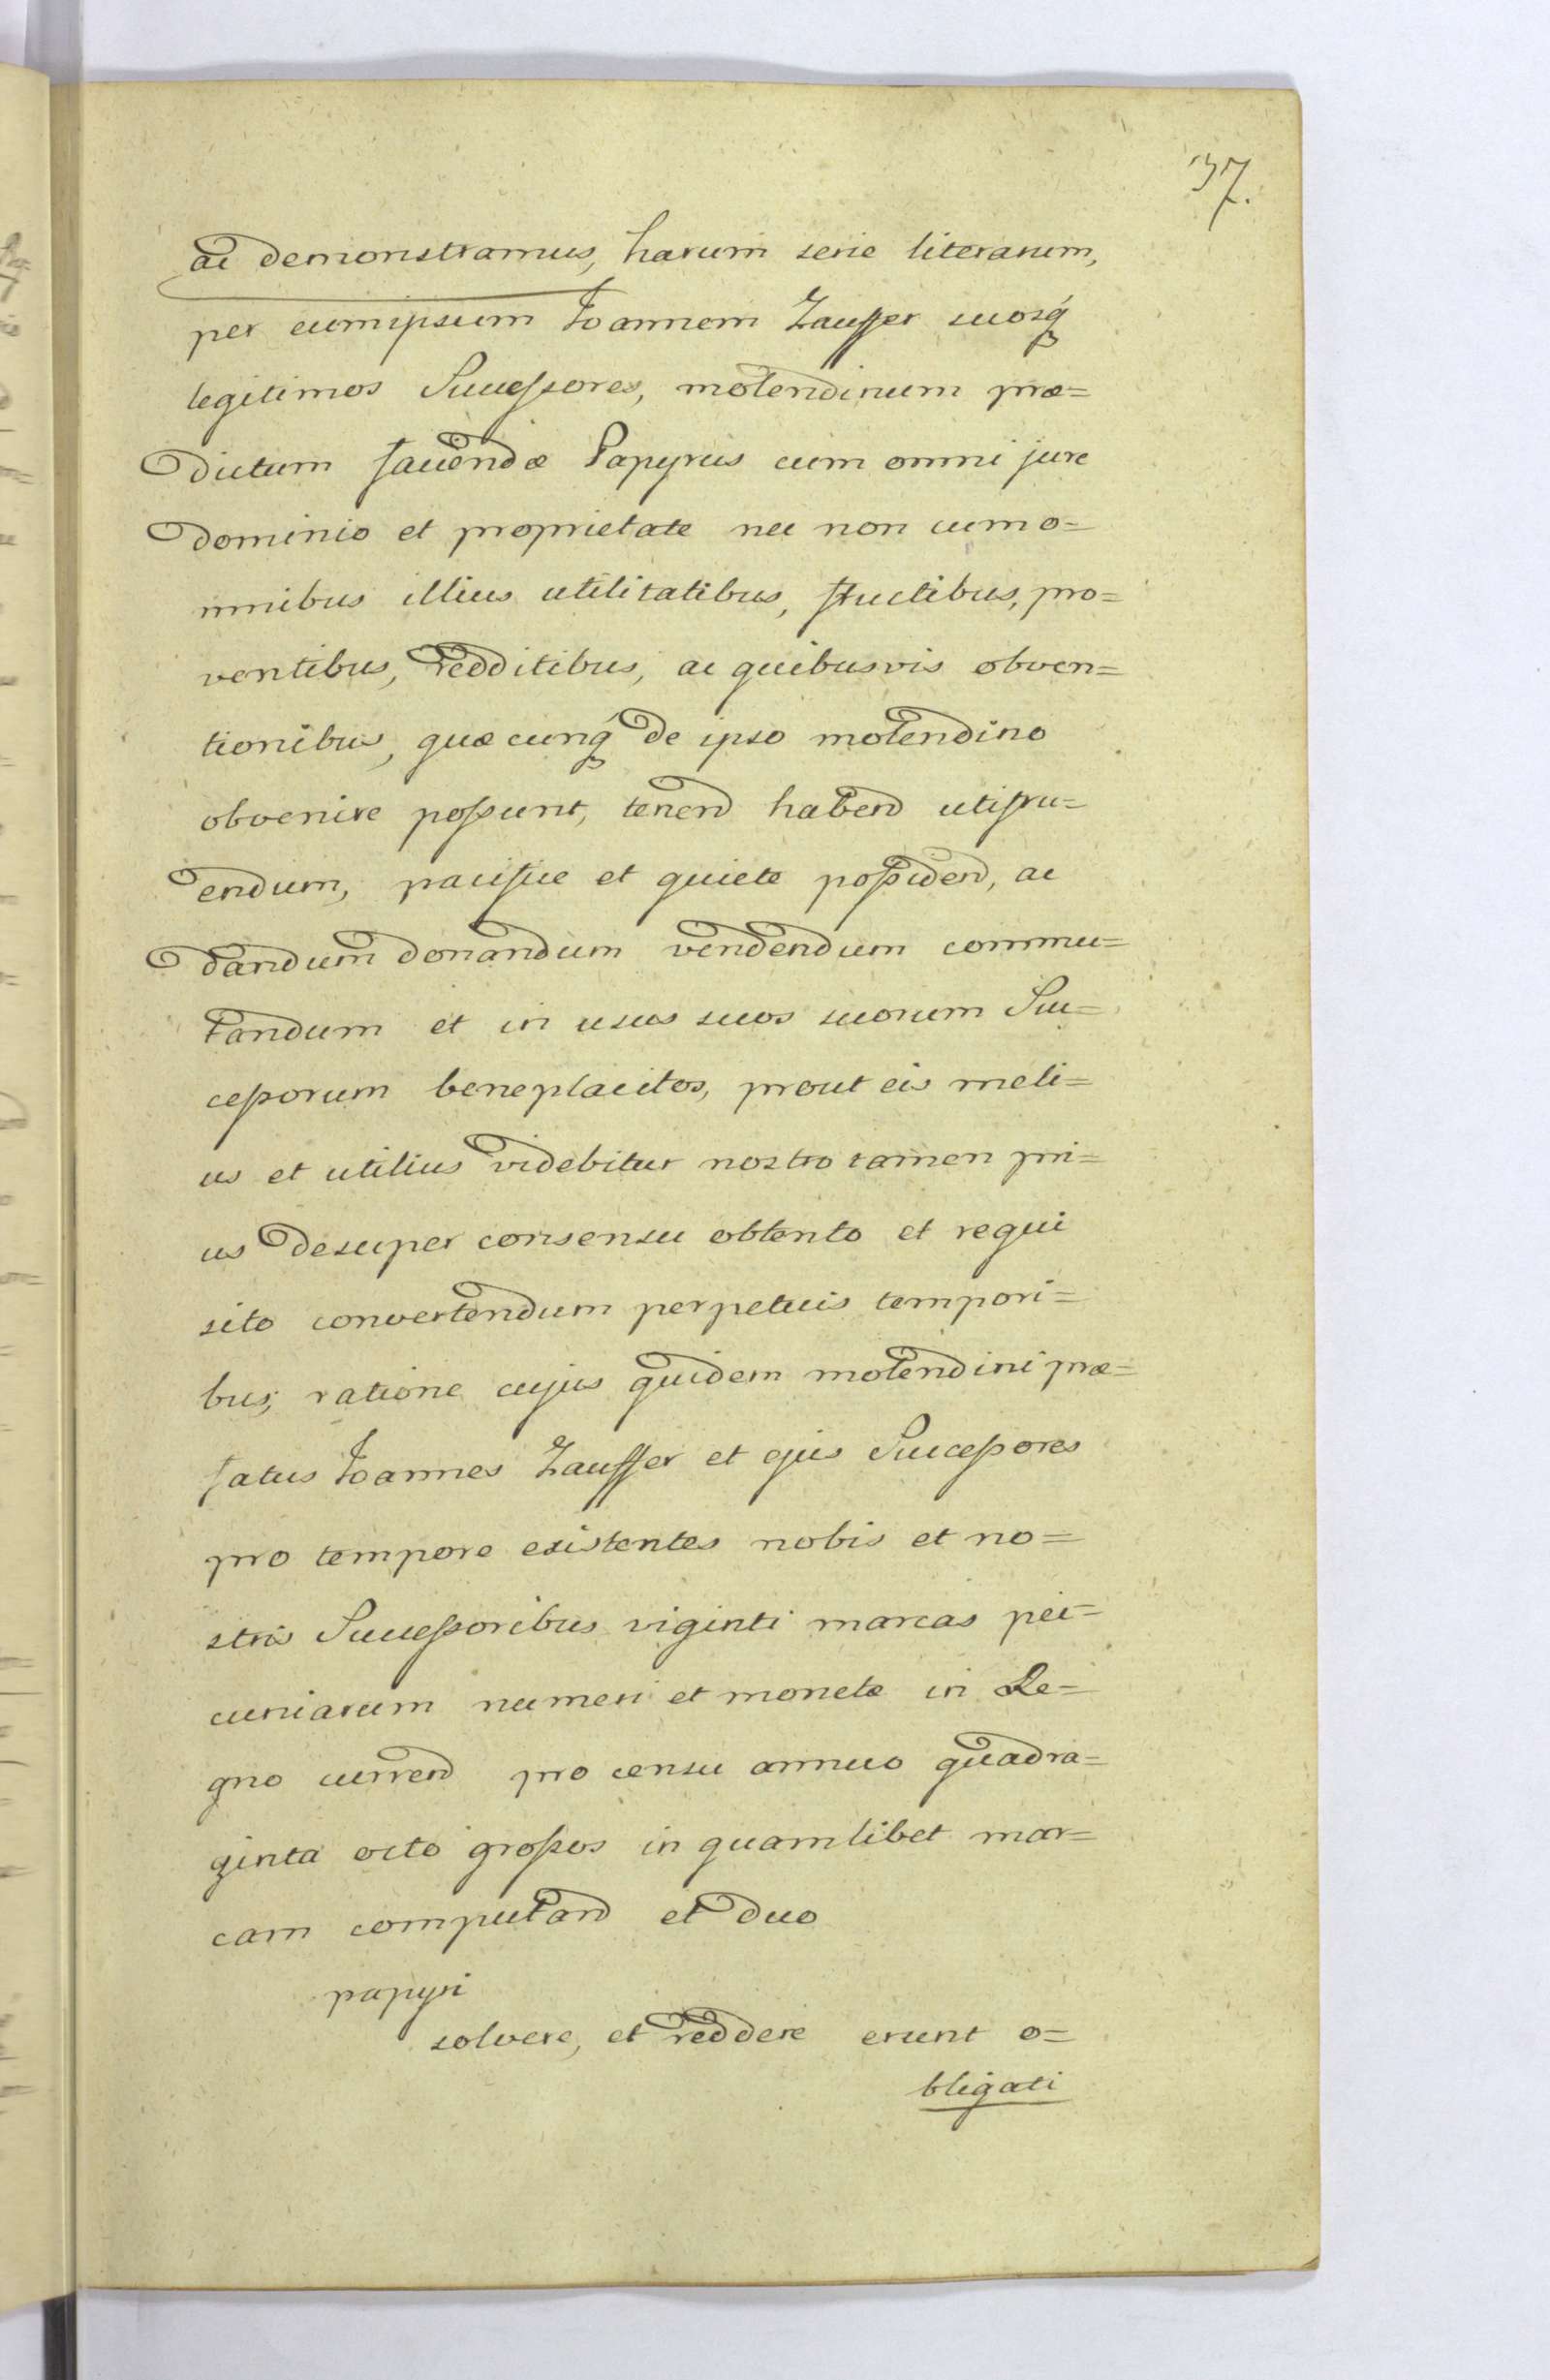 37.
ac demonstramus, harum serie literarum,
per eumipsum Joannem Zauffer suosq́
legitimos Succeſsores, molendinum præ=
dictum faciendæ Papyrus cum omni jure
dominio et proprietate nec non cum o=
mnibus illius utilitatibus, fructibus, pro=
ventibus, redditibus, ac quibusvis obven=
tionibus, quæcunq́ de ipso molendino
obvenire poſsunt, tenend habend utifru=
endum, pacifice et quiete poſsidend, ac
dandum donandum vendendum commu=
tandum et in usus suos suorum Suc=
ceſsorum beneplacitos, prout eis meli=
us et utilius videbitur nostro tamen pri=
us desuper consensu obtento et requi
sito convertendum perpetuis tempori=
bus; ratione cujus quidem molendini præ=
fatus Joannes Zauffer et ejus Succeſsores
pro tempore existentes nobis et no=
stris Succeſsoribus viginti marcas pec=
cuniarum numeri et monetæ in Re=
gno currend pro censu annuo quadra=
ginta octo groſsos in quamlibet mar=
cam computand et duo
papyri
solvere, et reddere erunt o=
bligati